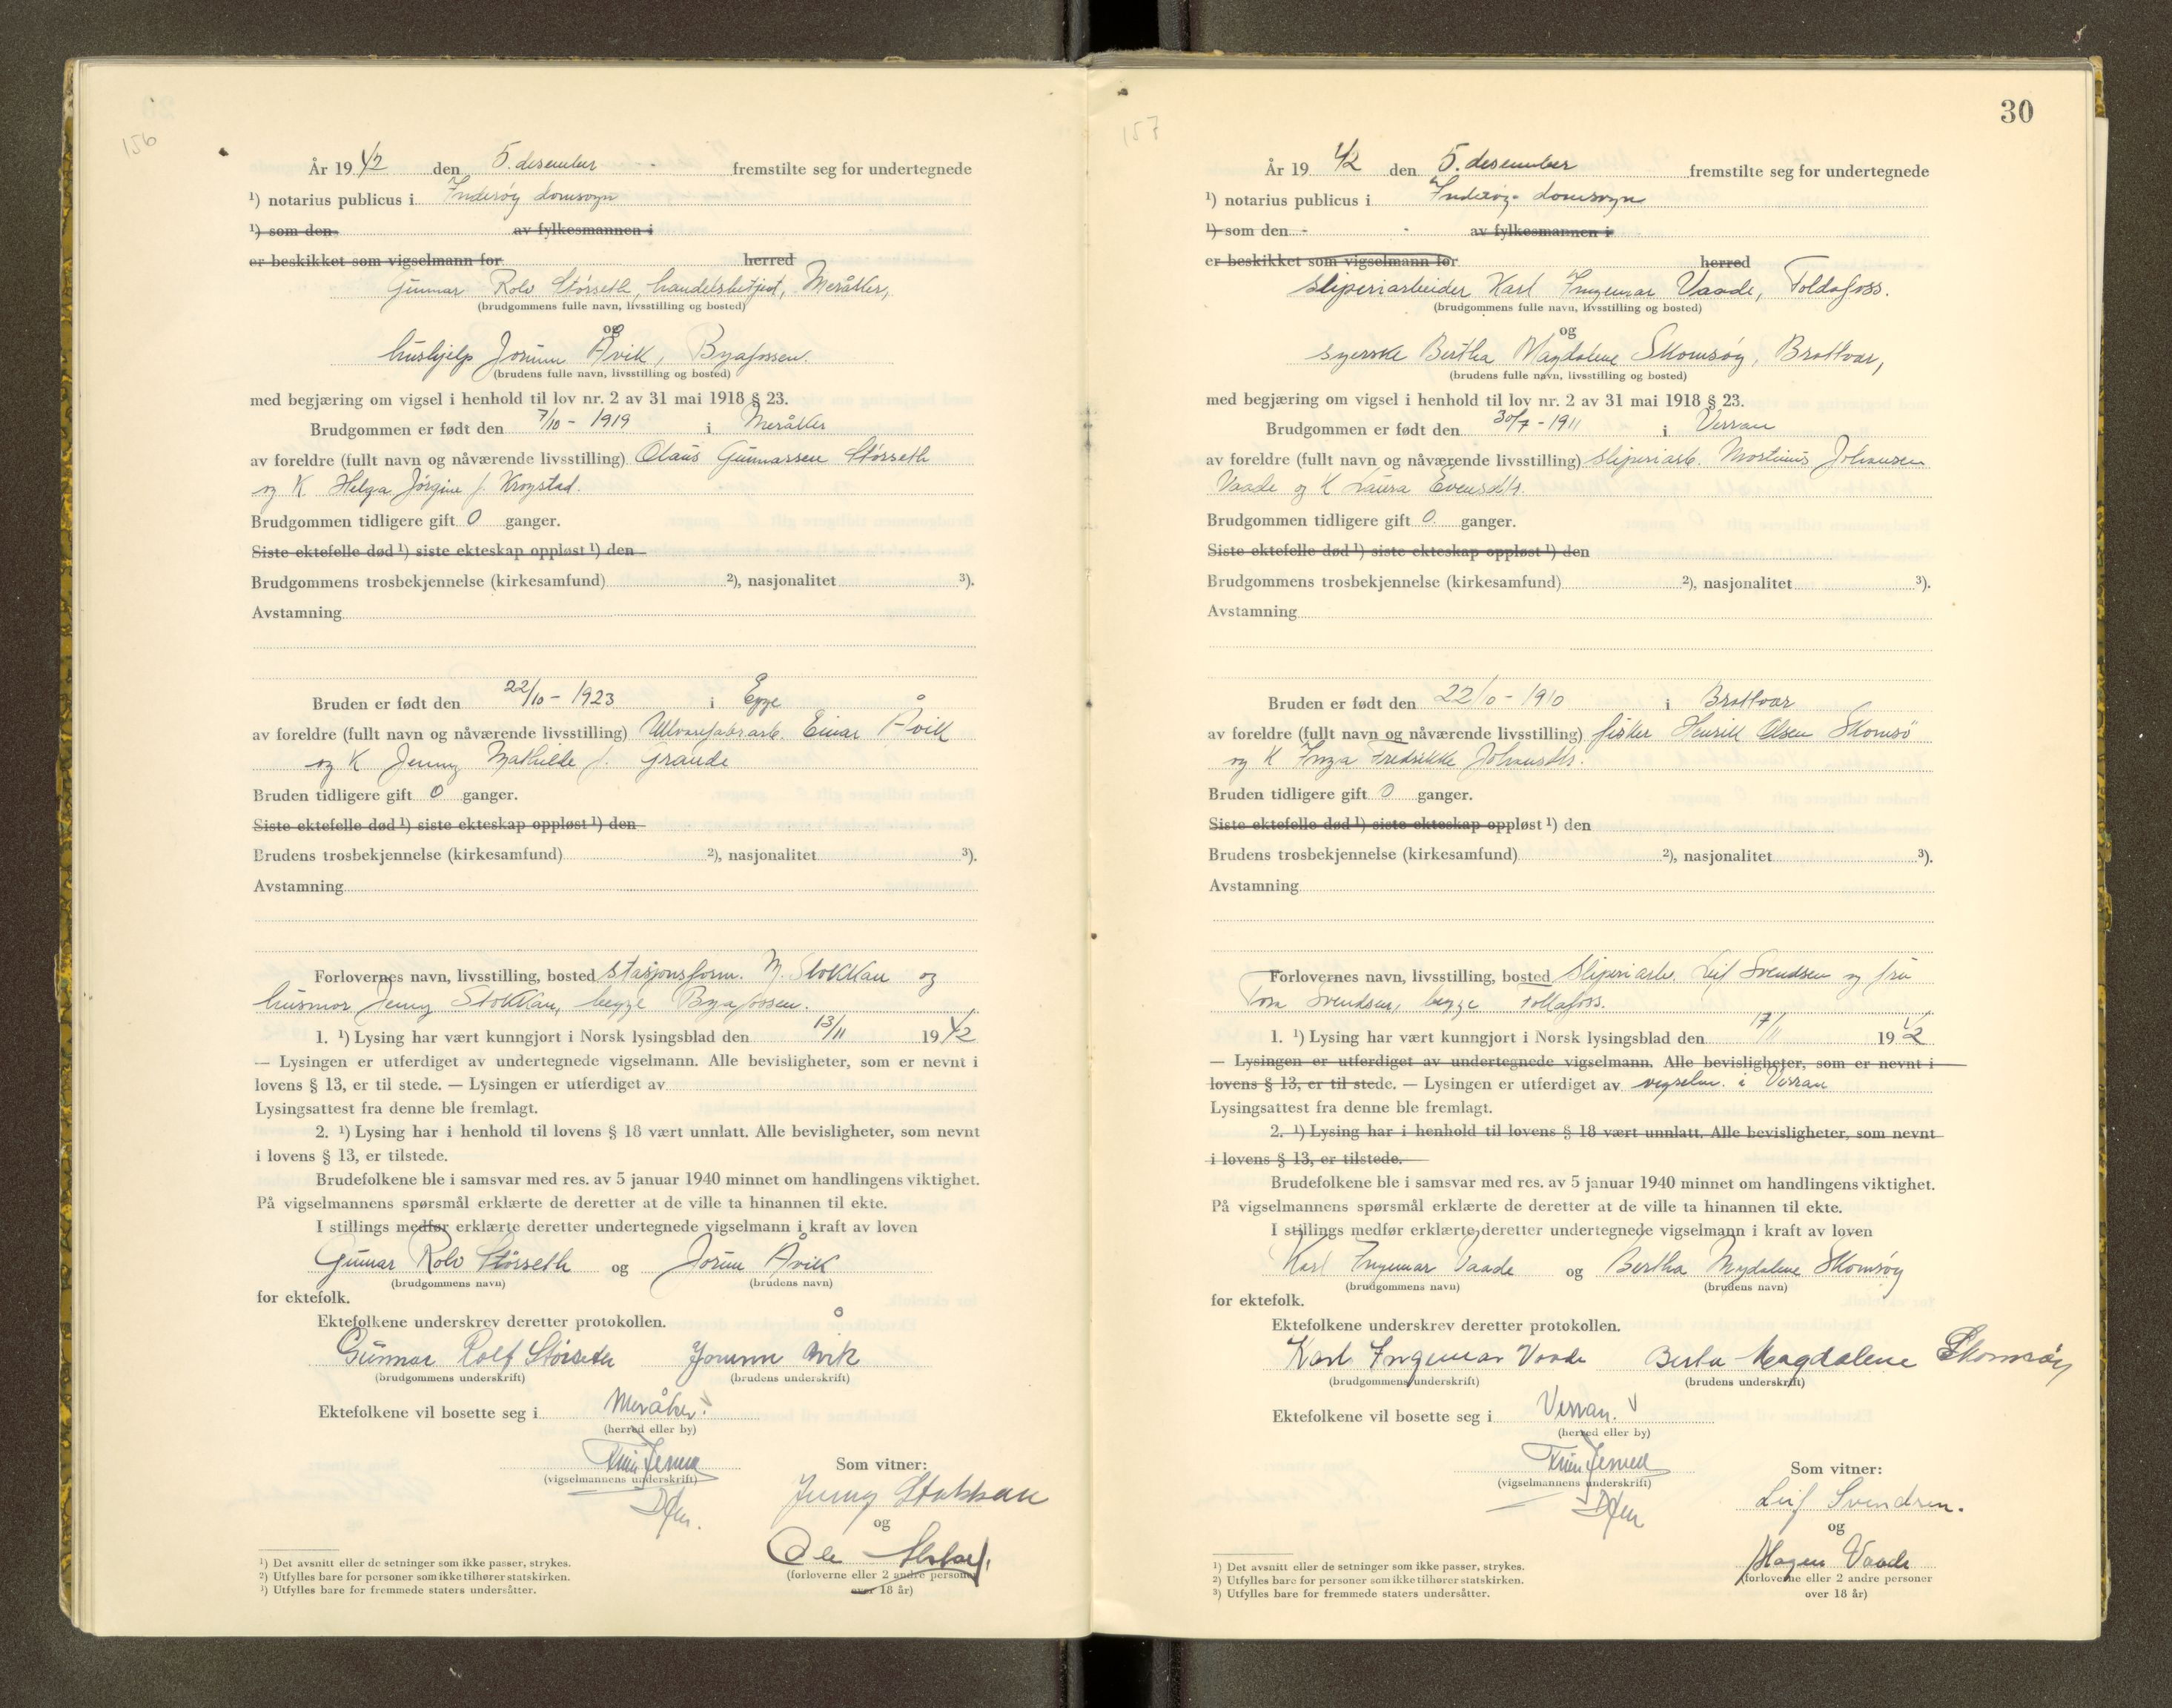 156
År 19 42 den 5. desember fremstilte seg for undertegnede
¹) notarius publicus i Inderøy domsogn
¹) som den av fylkesmannen i
er beskikket som vigselmann for herred
Gunnar Rolv Størseth, handelsbetjent, Meråker,
(brudgommens fulle navn, livsstilling og bosted)
og
hushjelp Jorunn Åvik, Byafossen.
(brudens fulle navn, livsstilling og bosted)
med begjæring om vigsel i henhold til lov nr. 2 av 31 mai 1918 § 23.
Brudgommen er født den 7/10 - 1919 i Meråker
av foreldre (fullt navn og nåværende livsstilling) Olaus Gunnarsen Størseth
og K Helga Jörgine f. Krogstad.
Brudgommen tidligere gift 0 ganger.
Siste ektefelle død ¹) siste ekteskap oppløst ¹) den
Brudgommens trosbekjennelse (kirkesamfund) ²), nasjonalitet ³).
Avstamning
Bruden er født den 22/10 - 1923 i Egge
av foreldre (fullt navn og nåværende livsstilling) Ullvarefabr.arb. Einar Åvik
og K Jenny Mathilde f. Grande
Bruden tidligere gift 0 ganger.
Siste ektefelle død ¹) siste ekteskap oppløst ¹) den
Brudens trosbekjennelse (kirkesamfund) ²), nasjonalitet ³).
Avstamning
Forlovernes navn, livsstilling, bosted stasjonsform. M. Stokkan og
husmor Jenny Stokkan, begge Byafossen.
1. ¹) Lysing har vært kunngjort i Norsk lysingsblad den 13/11 19 42
— Lysingen er utferdiget av undertegnede vigselmann. Alle bevisligheter, som er nevnt i
lovens § 13, er til stede. — Lysingen er utferdiget av
Lysingsattest fra denne ble fremlagt.
2. ¹) Lysing har i henhold til lovens § 18 vært unnlatt. Alle bevisligheter, som nevnt
i lovens § 13, er tilstede.
Brudefolkene ble i samsvar med res. av 5 januar 1940 minnet om handlingens viktighet.
På vigselmannens spørsmål erklærte de deretter at de ville ta hinannen til ekte.
I stillings medfør erklærte deretter undertegnede vigselmann i kraft av loven
Gunnar Rolv Størseth og Jorunn Åvik
(brudgommens navn) (brudens navn)
for ektefolk.
Ektefolkene underskrev deretter protokollen.
Gunnar Rolf Størseth Jorunn Åvik
(brudgommens underskrift) (brudens underskrift)
Ektefolkene vil bosette seg i Meråker.
(herred eller by)
(vigselmannens underskrift)
Som vitner:
Jenny Stokkan
og
Ole
(forloverne eller 2 andre personer
over 18 år)
¹) Det avsnitt eller de setninger som ikke passer, strykes.
²) Utfylles bare for personer som ikke tilhører statskirken.
³) Utfylles bare for fremmede staters undersåtter.
30
157
År 19 42 den 5. desember fremstilte seg for undertegnede
¹) notarius publicus i Inderøy domsogn
¹) som den av fylkesmannen i
er beskikket som vigselmann for herred
sliperiarbeider Karl Ingemar Vaade, Foldafoss.
(brudgommens fulle navn, livsstilling og bosted)
og
syerske Bertha Magdalene Skomsøy, Brattvær,
(brudens fulle navn, livsstilling og bosted)
med begjæring om vigsel i henhold til lov nr. 2 av 31 mai 1918 § 23.
Brudgommen er født den 30/7 - 1911 i Verran
av foreldre (fullt navn og nåværende livsstilling) sliperiarb. Mortinus Johansen
Vaade og K Laura Evensdtr.
Brudgommen tidligere gift 0 ganger.
Siste ektefelle død ¹) siste ekteskap oppløst ¹) den
Brudgommens trosbekjennelse (kirkesamfund) ²), nasjonalitet ³).
Avstamning
Bruden er født den 22/10 - 1910 i Brattvær
av foreldre (fullt navn og nåværende livsstilling) fisker Henrik Olsen Skomsø
og K Inga Fredrikke Johansdtr.
Bruden tidligere gift 0 ganger.
Siste ektefelle død ¹) siste ekteskap oppløst ¹) den
Brudens trosbekjennelse (kirkesamfund) ²), nasjonalitet ³).
Avstamning
Forlovernes navn, livsstilling, bosted sliperiarb. Leif Svendsen og fru
Tora Svendsen, begge Follafoss.
1. ¹) Lysing har vært kunngjort i Norsk lysingsblad den 17/11 19 42
— Lysingen er utferdiget av undertegnede vigselmann. Alle bevisligheter, som er nevnt i
lovens § 13, er til stede. — Lysingen er utferdiget av vigselm. i Verran
Lysingsattest fra denne ble fremlagt.
2. ¹) Lysing har i henhold til lovens § 18 vært unnlatt. Alle bevisligheter, som nevnt
i lovens § 13, er tilstede.
Brudefolkene ble i samsvar med res. av 5 januar 1940 minnet om handlingens viktighet.
På vigselmannens spørsmål erklærte de deretter at de ville ta hinannen til ekte.
I stillings medfør erklærte deretter undertegnede vigselmann i kraft av loven
Karl Ingemar Vaade og Bertha Magdalene Skomsøy
(brudgommens navn) (brudens navn)
for ektefolk.
Ektefolkene underskrev deretter protokollen.
Karl Ingemar Vaade Berta Magdalene Skomsøy
(brudgommens underskrift) (brudens underskrift)
Ektefolkene vil bosette seg i Verran.
(herred eller by)
(vigselmannens underskrift)
Som vitner:
Leif Svendsen.
og
Hagen Vaade
(forloverne eller 2 andre personer
over 18 år)
¹) Det avsnitt eller de setninger som ikke passer, strykes.
²) Utfylles bare for personer som ikke tilhører statskirken.
³) Utfylles bare for fremmede staters undersåtter.